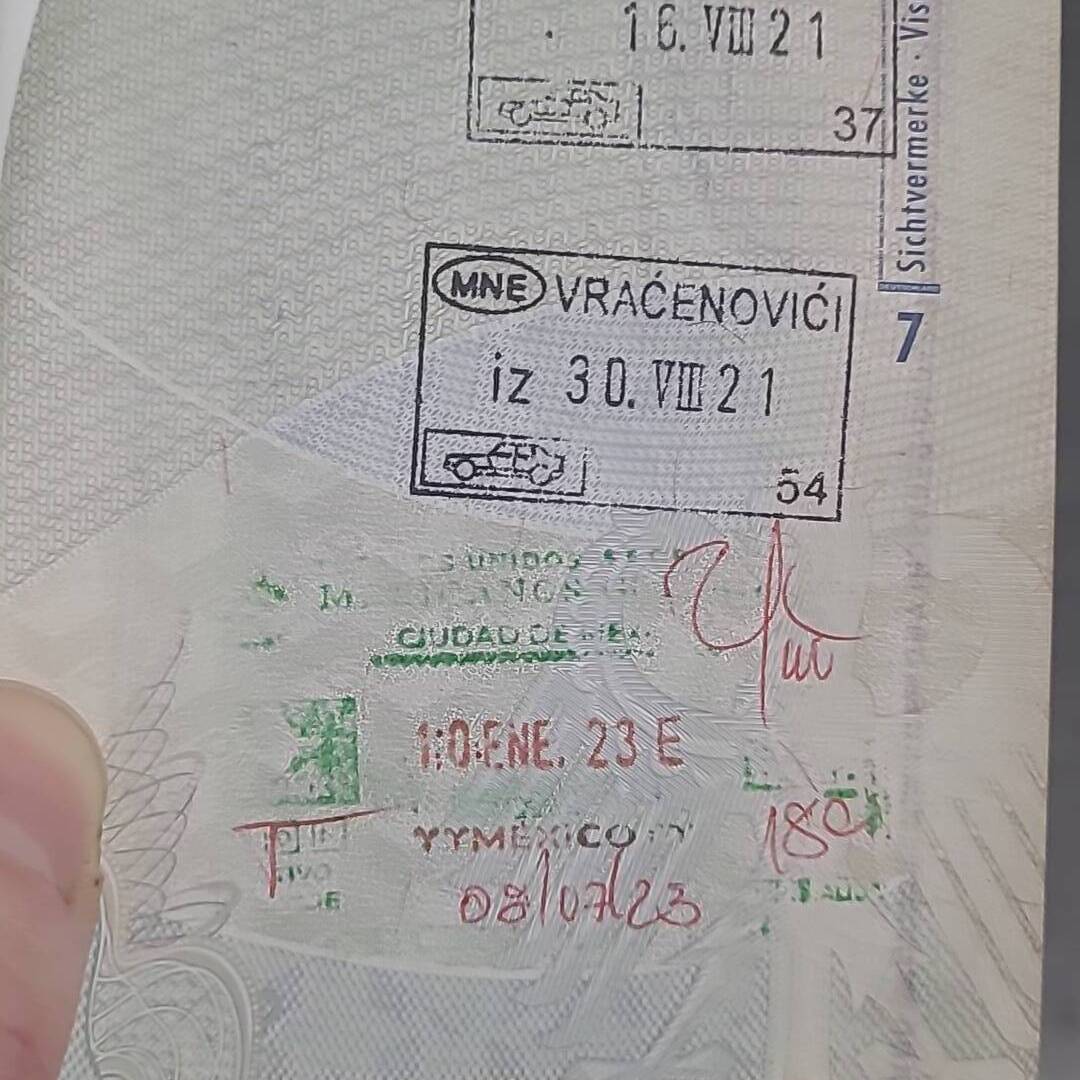 16. VIII 21
37
Sichtvermerke · Vis
DEUTSCHLAND
7
MNE VRAĆENOVIĆI
iz 30. VIII 21
54
UNIDOS
CIUDAD DE MEX
10 ENE. 23 E
T
YYMEXICO
180
08/07/23